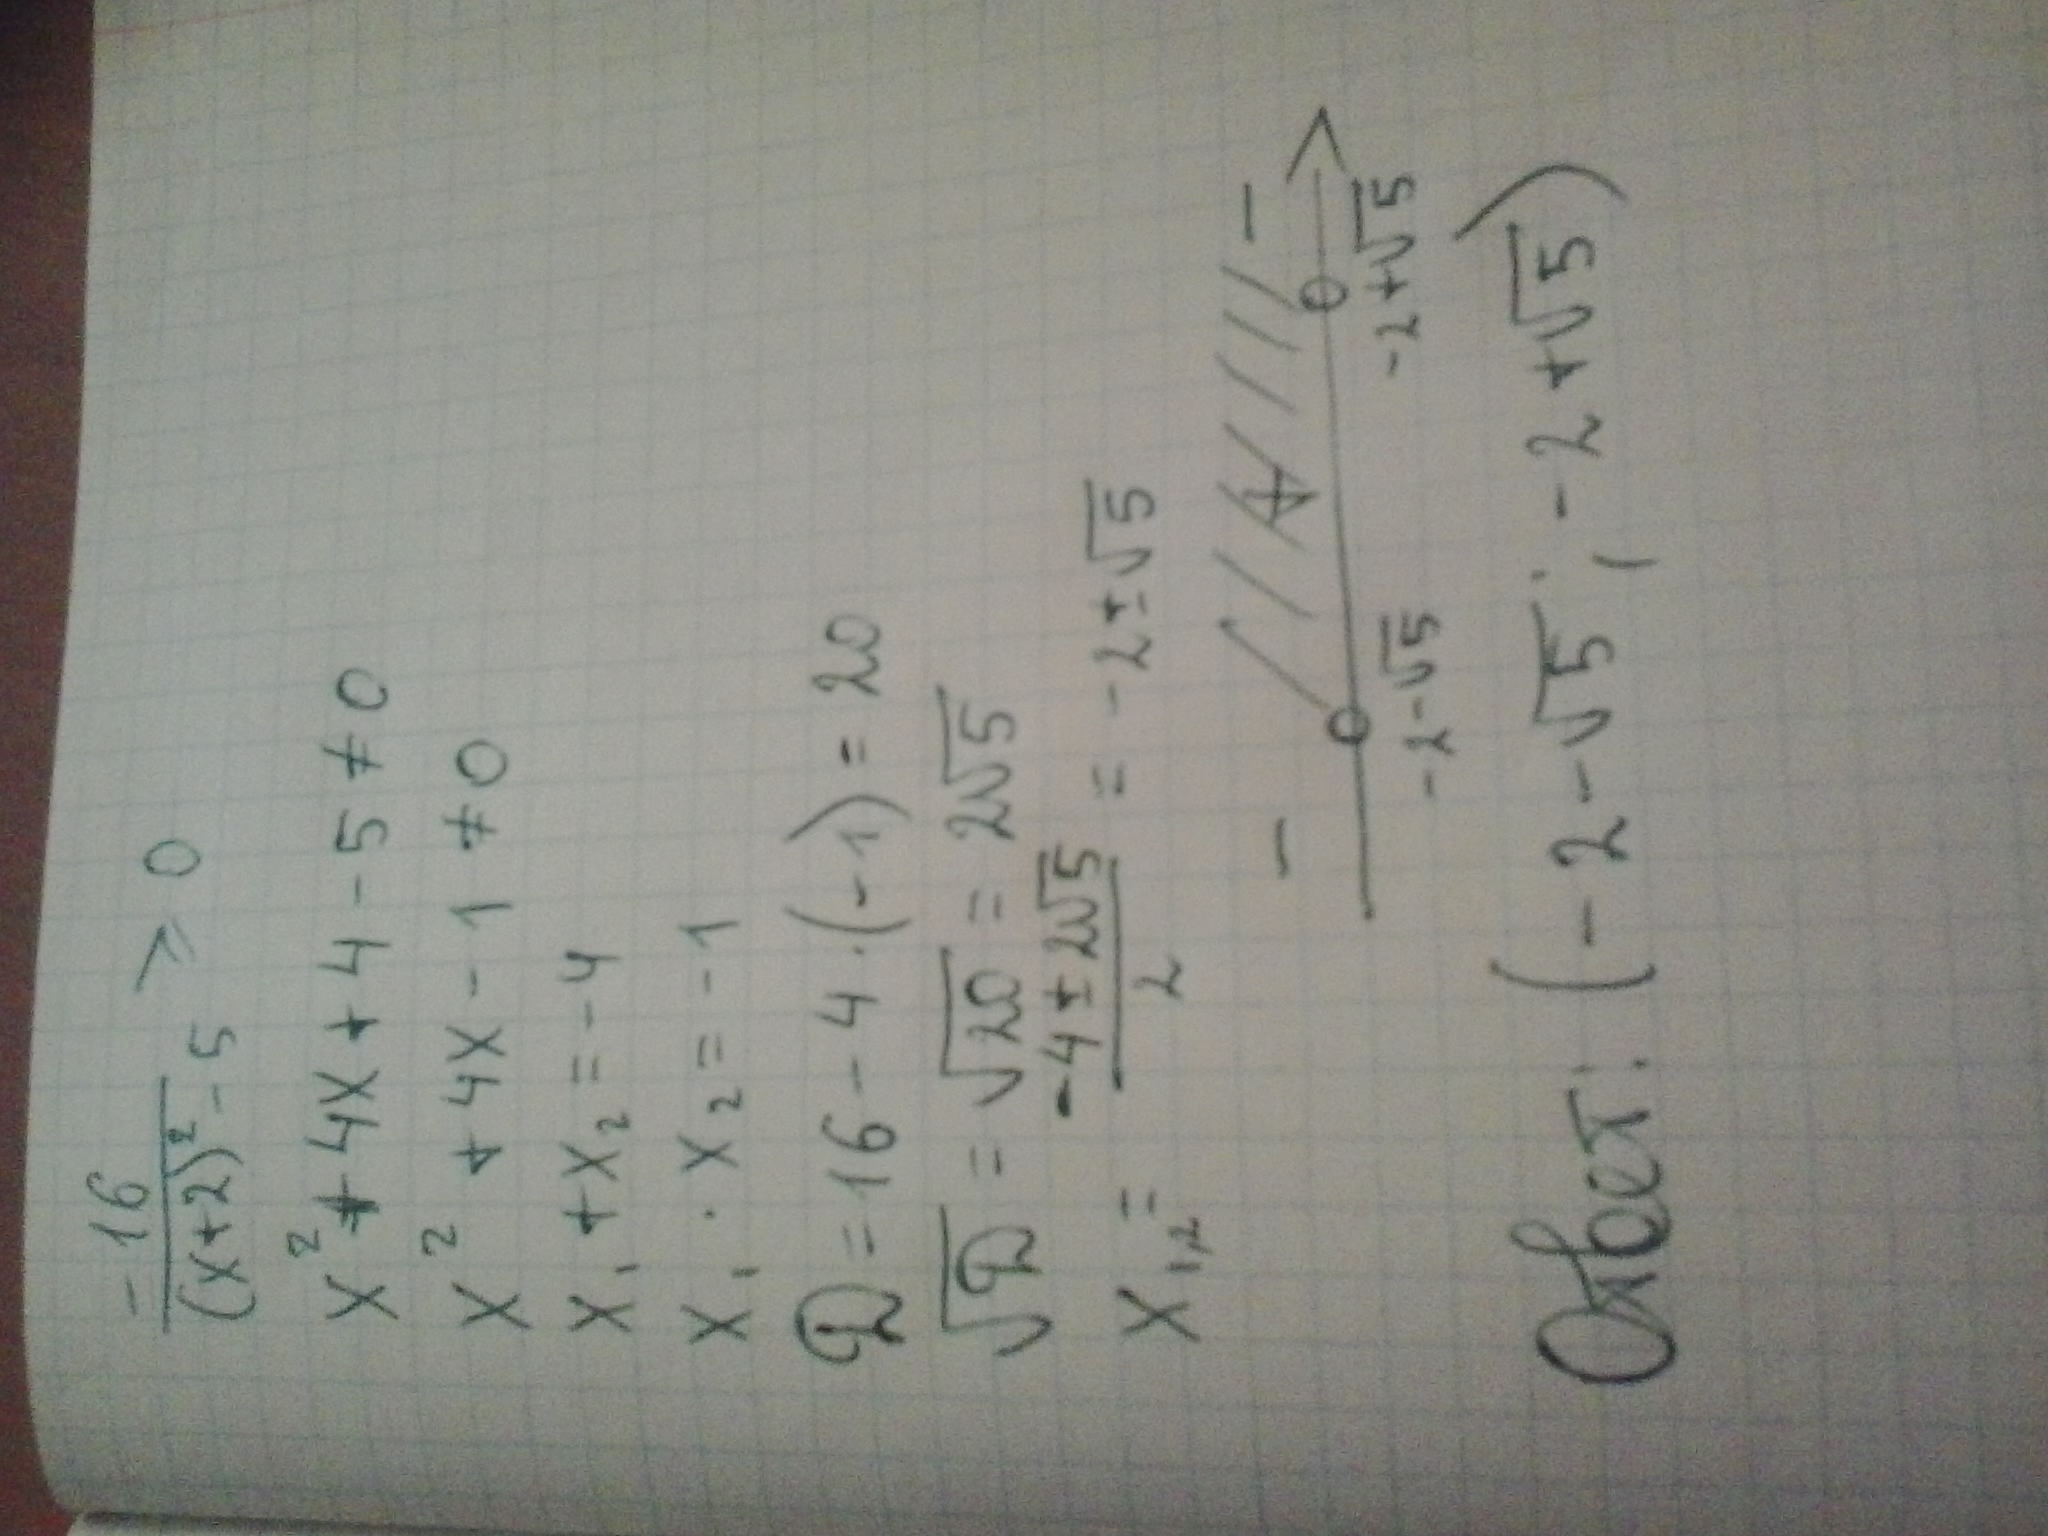 -16/(x+2)²-5 ≥ 0
x² + 4x + 4 - 5 ≠ 0
x² + 4x - 1 ≠ 0
x₁ + x₂ = -4
x₁ · x₂ = -1
D = 16 - 4 · (-1) = 20
√D = √20 = 2√5
x₁,₂ = (-4 ± 2√5)/2 = -2 ± √5
- + -
-2-√5 -2+√5
Ответ: (-2-√5; -2+√5)